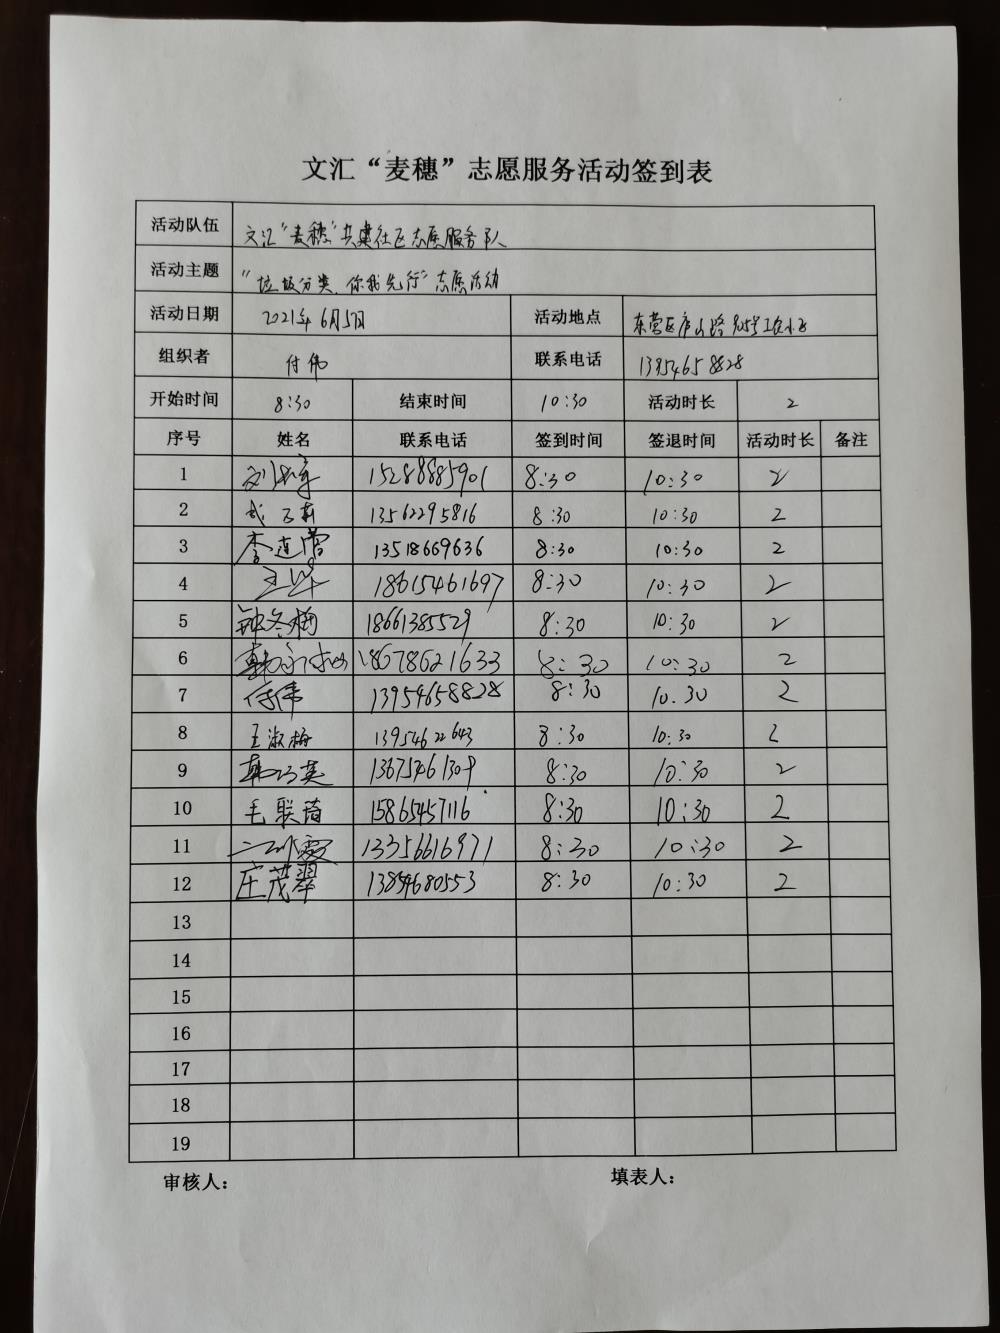 文汇“麦穗”志愿服务活动签到表
活动队伍 文汇“麦穗”共建社区志愿服务队
活动主题 “垃圾分类、你我先行”志愿活动
活动日期 2021年6月5日 活动地点 东营区庐山路905号工农小区
组织者 付伟 联系电话 13954658828
开始时间 8:30 结束时间 10:30 活动时长 2
序号 姓名 联系电话 签到时间 签退时间 活动时长 备注
1 15288885901 8:30 10:30 2
2 13562295816 8:30 10:30 2
3 李连营 13518669636 8:30 10:30 2
4 18615461697 8:30 10:30 2
5 钟冬梅 18661385529 8:30 10:30 2
6 18678621633 8:30 10:30 2
7 付伟 13954658828 8:30 10.30 2
8 王淑梅 13954622643 8:30 10:30 2
9 韩巧英 13675461309 8:30 10:30 2
10 毛联琦 15865457116 8:30 10:30 2
11 13356616971 8:30 10:30 2
12 庄茂翠 13854680553 8:30 10:30 2
13
14
15
16
17
18
19
审核人: 填表人: